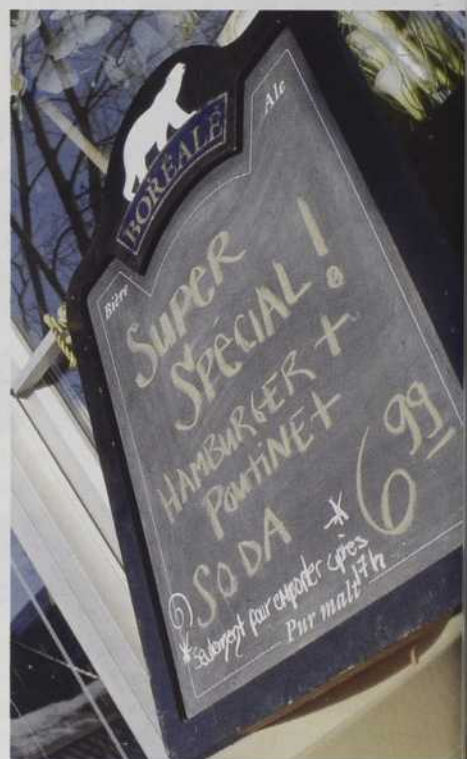 BORÉALE
Bière
Ale
SUPER
SPÉCIAL!
HAMBURGER +
POUTINE +
SODA
6 99
*
* seulement pour emporter après
17h
Pur malt